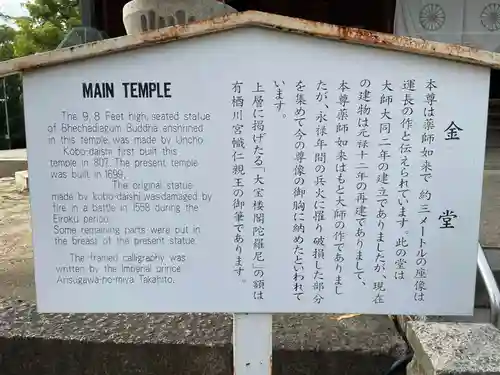 MAIN TEMPLE
The 9.8 Feet high, seated statue
of Bhechadiagum Buddha enshrined
in this temple was made by Uncho.
Kobo-daishi first built this
temple in 807. The present temple
was built in 1699.
The original statue
made by kobo-daishi was damaged by
fire in a battle in 1558 during the
Eiroku period.
Some remaining parts were put in
the breast of the present statue.
The framed calligraphy was
written by the Imperial prince
Arisugawa-no-miya Takahito.
金堂
本尊は薬師如来で約三メートルの座像は
運長の作と伝えられています。此の堂は
大師大同二年の建立でありましたが、現在
の建物は元禄十二年の再建でありまして、
本尊薬師如来はもと大師の作でありまし
たが、永禄年間の兵火に罹り破損した部分
を集めて今の尊像の御胸に納めたといわれて
います。
上層に掲げたる「大宝楼閣陀羅尼」の額は
有栖川宮幟仁親王の御筆であります。